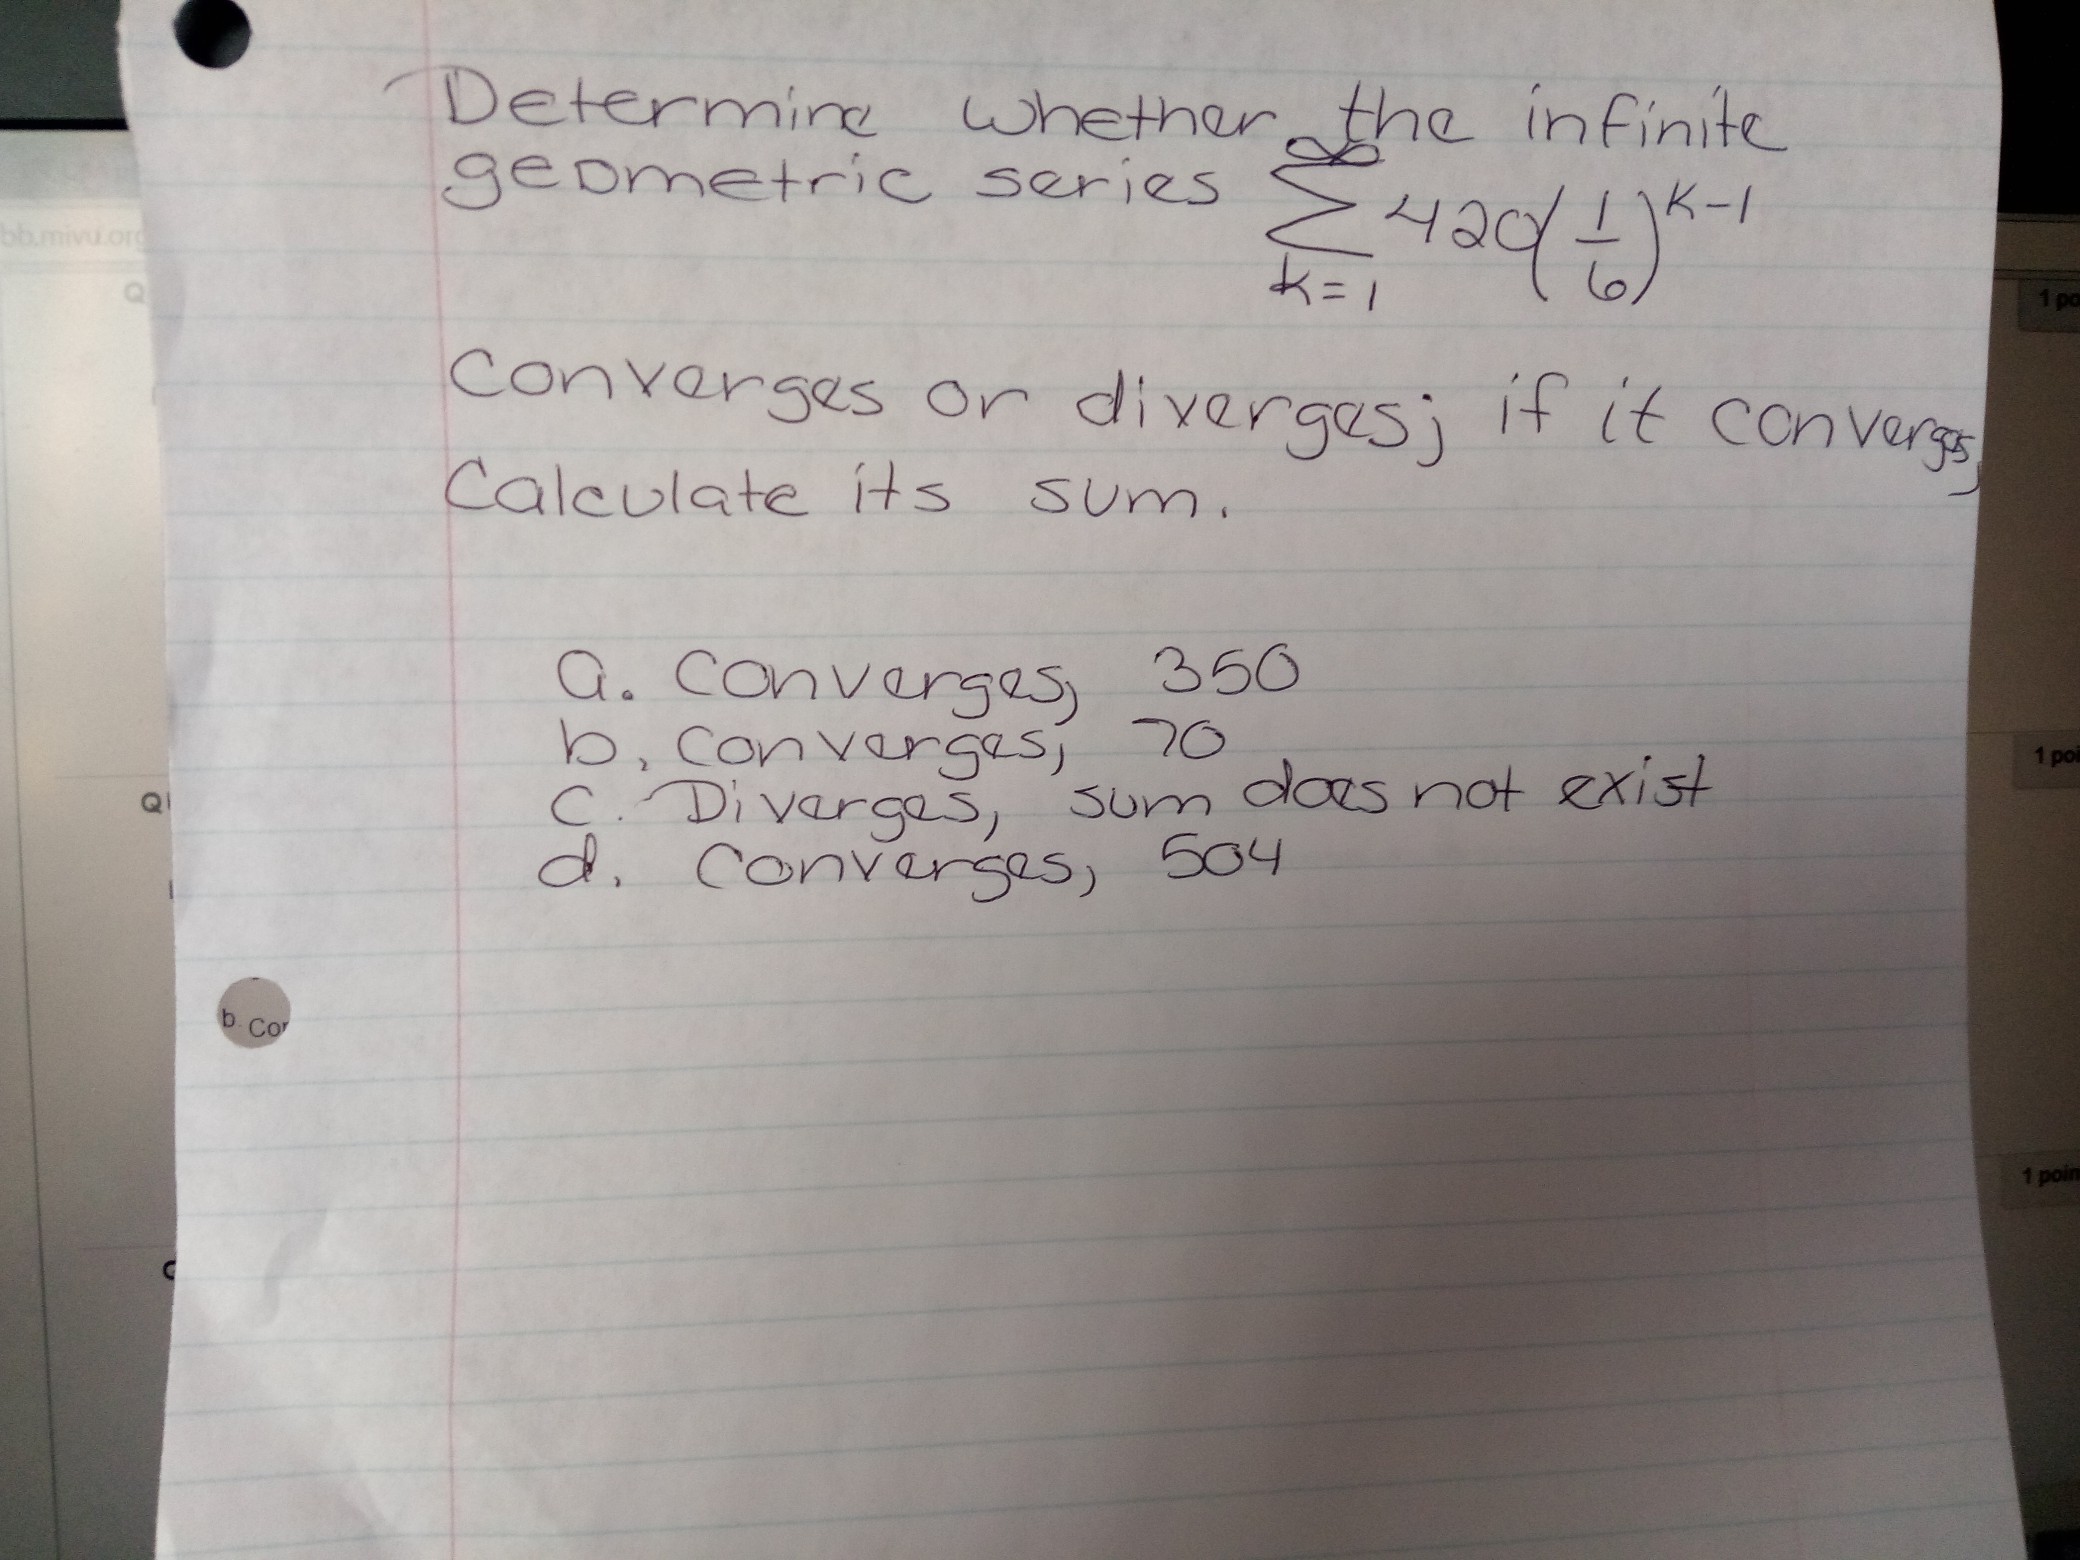 Determine whether the infinite
geometric series ∞ Σ k=1 420(1/6)^k-1
converges or diverges; if it converges,
Calculate its sum.
a. Converges, 350
b. Converges, 70
c. Diverges, sum does not exist
d. Converges, 504
bb.mivu.org
Q
1 po
1 poi
Q
1 poin
b. Cor